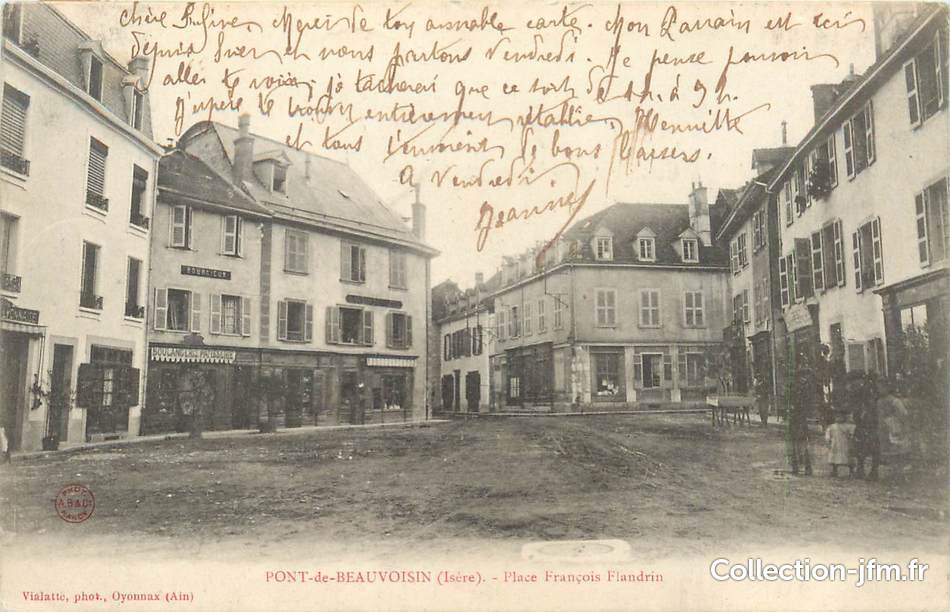 chère Merci de ton aimable carte. Mon Parrain est ici
depuis hier et nous partons Vendredi. Je pense pouvoir
aller te voir, je tacherai que ce soit de à 9 h.
J'espère te trouver entièrement rétablie.
et tous t'envoient de bons baisers.
à Vendredi.
Jeanne
BOURLIEUX
BOULANGERIE PATISSERIE
YONNAISE
PHOT
A.B & Cie
NANCY
PONT-de-BEAUVOISIN (Isère). - Place François Flandrin
Vialatte, phot., Oyonnax (Ain)
Collection-jfm.fr